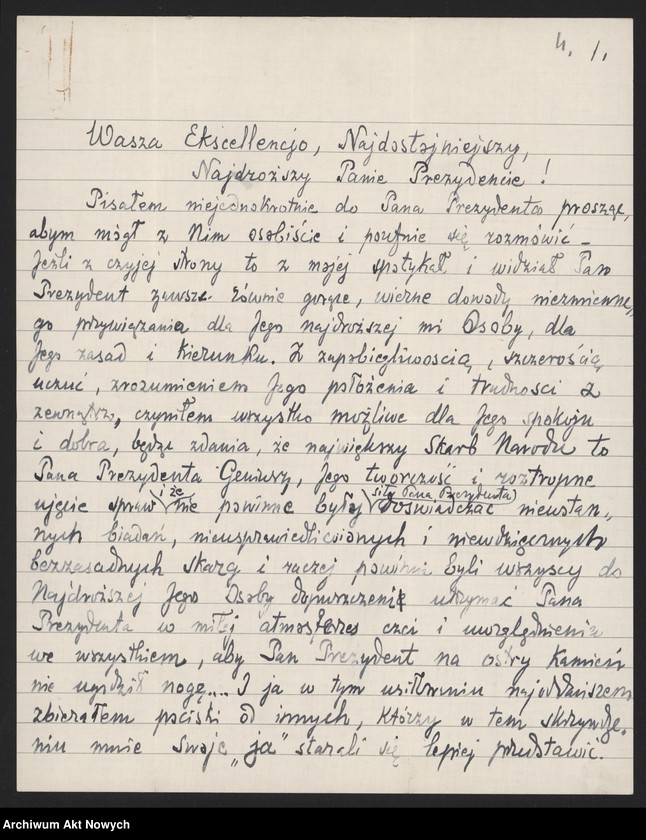 4. 1.
Wasza Ekscellencjo, Najdostojniejszy,
Najdroższy Panie Prezydencie !
Pisałem niejednokrotnie do Pana Prezydenta prosząc,
abym mógł z Nim osobiście i poufnie się rozmówić –
Jeżli z czyjej strony to z mojej spotykał i widział Pan
Prezydent zawsze równie gorące, wierne dowody niezmienne-
go przywiązania dla Jego najdroższej mi Osoby, dla
Jego zasad i kierunku. Z zapobiegliwością, szczerością
uczuć, zrozumieniem Jego położenia i trudności z
zewnątrz, czyniłem wszystko możliwe dla Jego spokoju
i dobra, będąc zdania, że największy Skarb Narodu to
Pana Prezydenta Geniusz, Jego twórczość i roztropne
i że siły Pana Prezydenta
ujęcie spraw nie powinne były doświadczać nieustan-
nych biadań, nieusprawiedliwionych i niewdzięcznych
bezzasadnych skarg i raczej powinni byli wszyscy do
Najdroższej Jego Osoby dopuszczeni utrzymać Pana
Prezydenta w miłej atmosferze czci i uwzględnienia
we wszystkiem, aby Pan Prezydent na ostry kamień
nie ugodził nogę.... I ja w tym usiłowaniu najoddańszem
zbierałem pociski od innych, którzy w tem skrzywdze-
niu mnie swoje „ja" starali się lepiej przedstawić.
Archiwum Akt Nowych